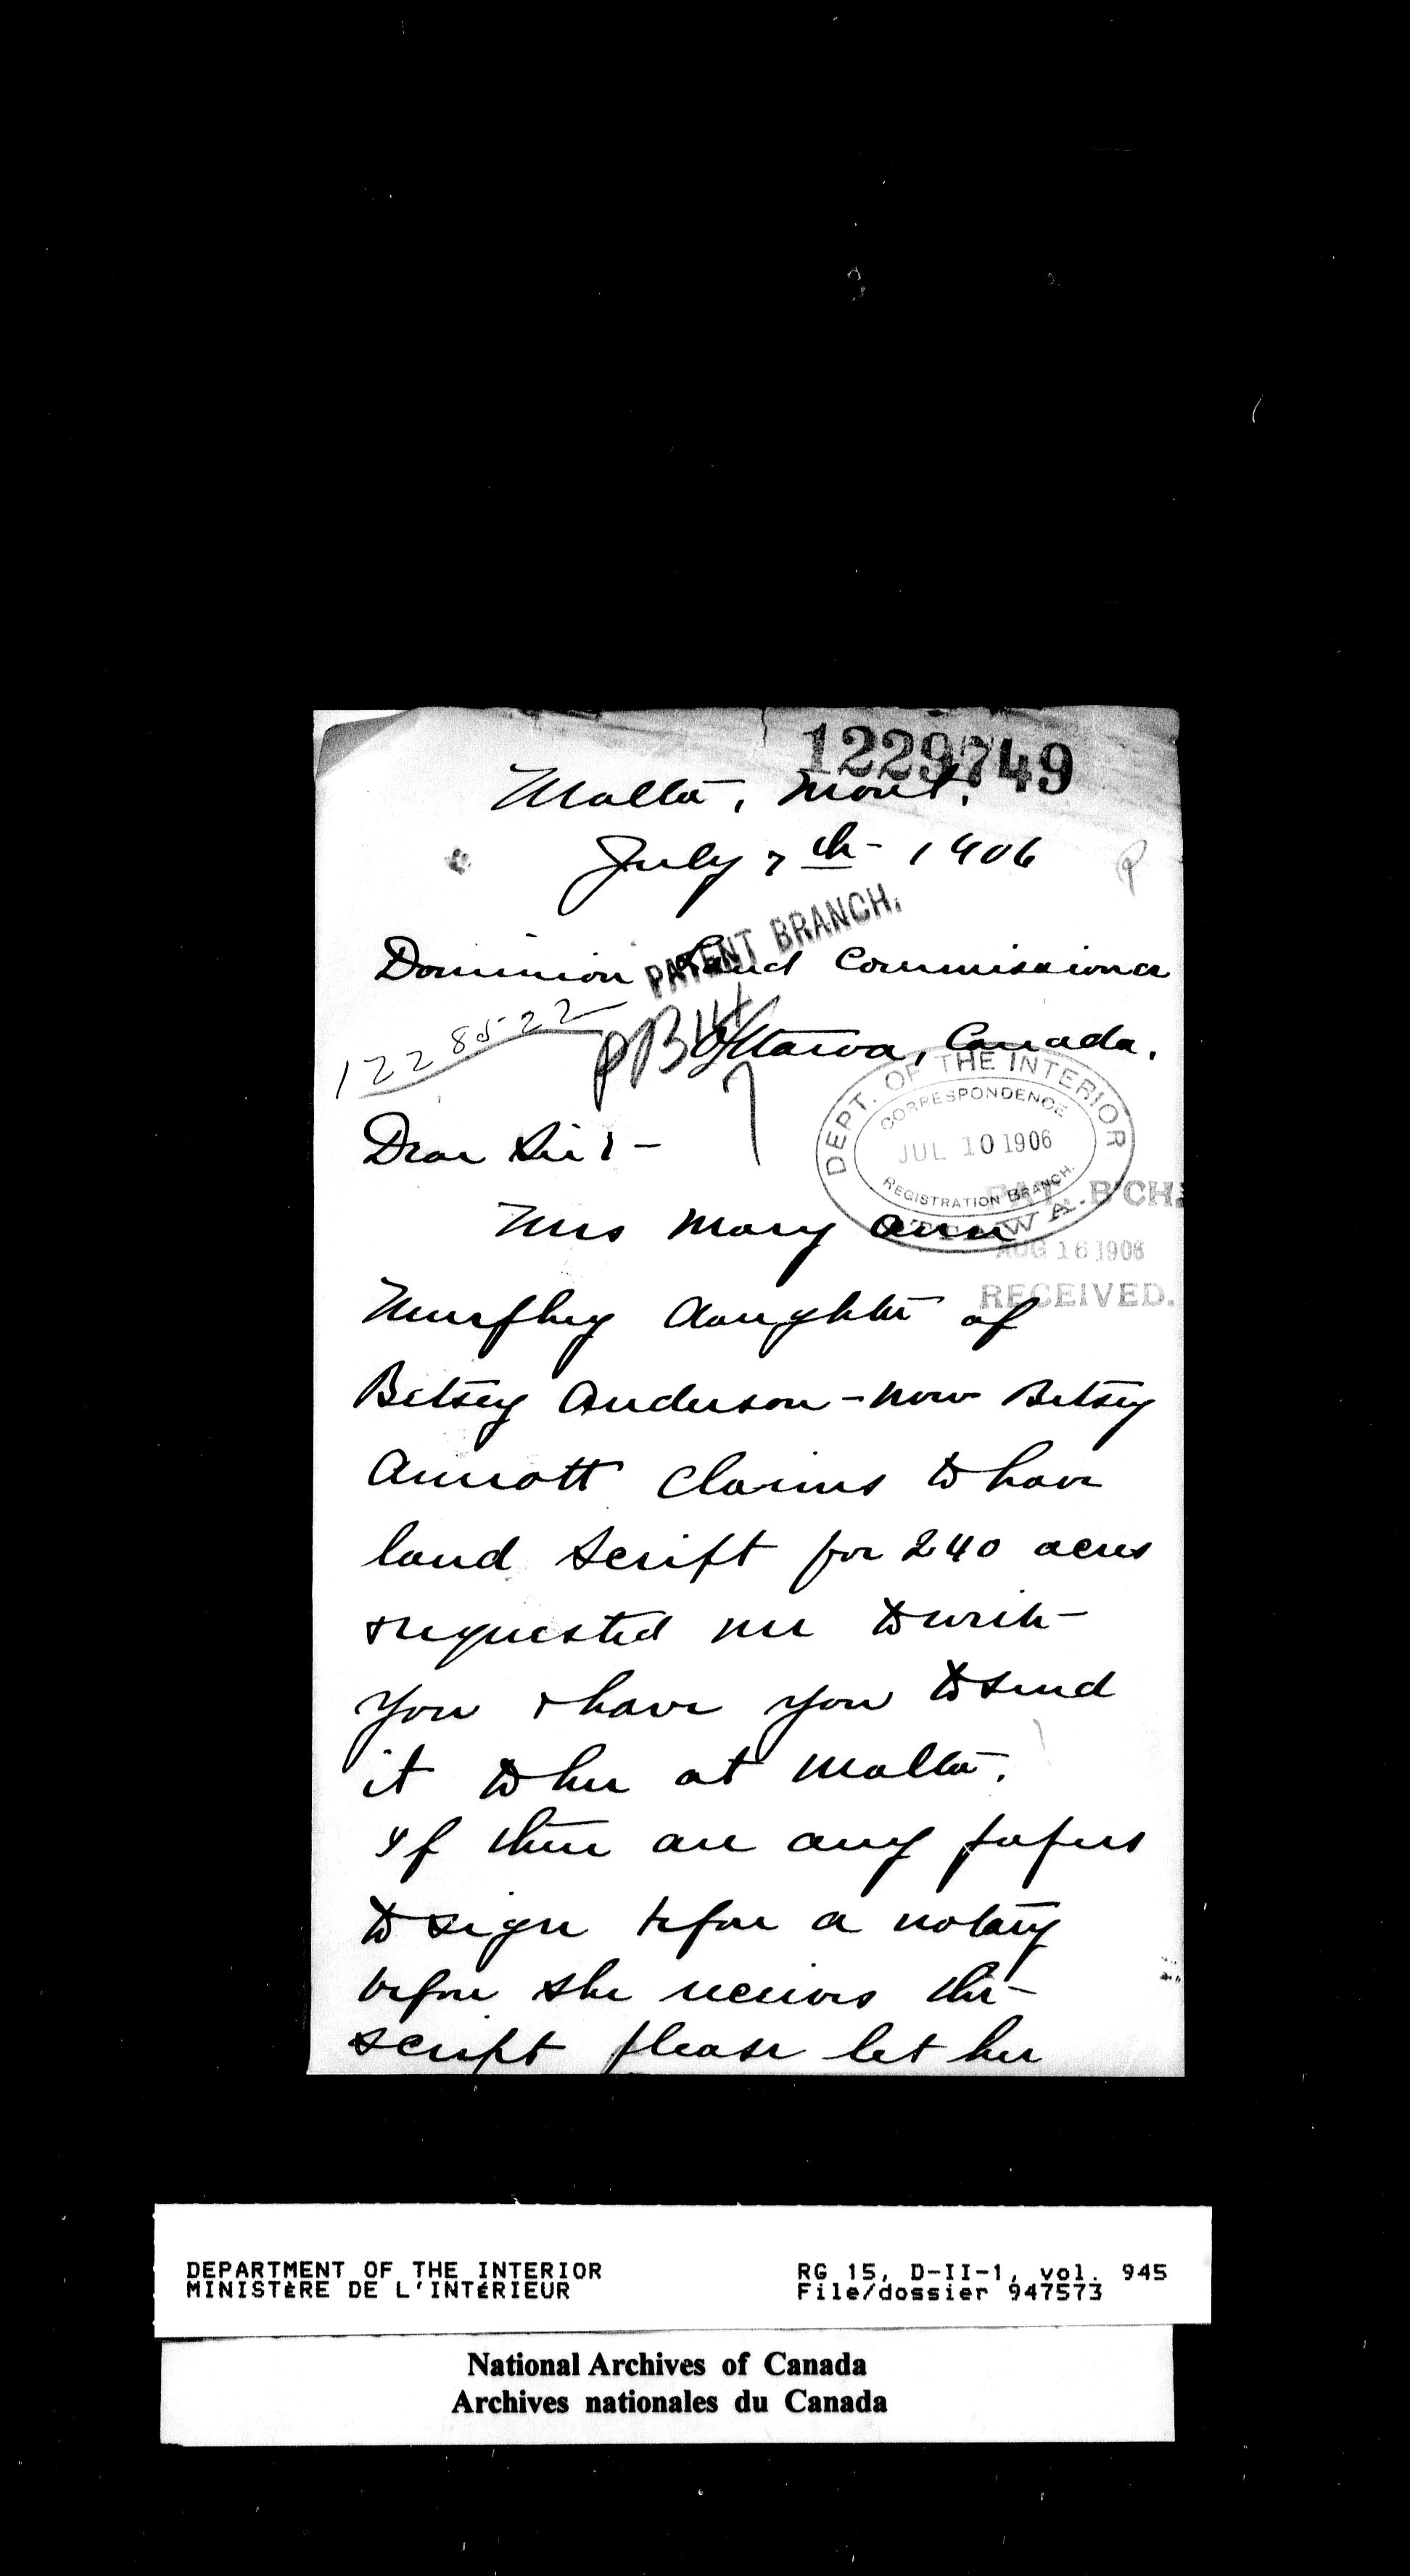 1229749
Malta, Mont.
July 7th - 1906
PATENT BRANCH.
Dominion Land Commissioner
1228522
PB14
Ottawa, Canada.
7
DEPT. OF THE INTERIOR
CORRESPONDENCE
JUL 10 1906
REGISTRATION BRANCH.
OTTAWA.
Dear Sir:-
PAT. B'CH.
AUG 16 1906
RECEIVED.
Mrs Mary Ann
Murphy daughter of
Betsey Anderson - now Betsey
claims to have
land script for 240 acres
& requested me to write
you & have you to send
it to her at Malta.
If there are any papers
to sign before a notary
before she receives the
script please let her
DEPARTMENT OF THE INTERIOR
MINISTÈRE DE L'INTÉRIEUR
RG 15, D-II-1, vol. 945
File/dossier 947573
National Archives of Canada
Archives nationales du Canada